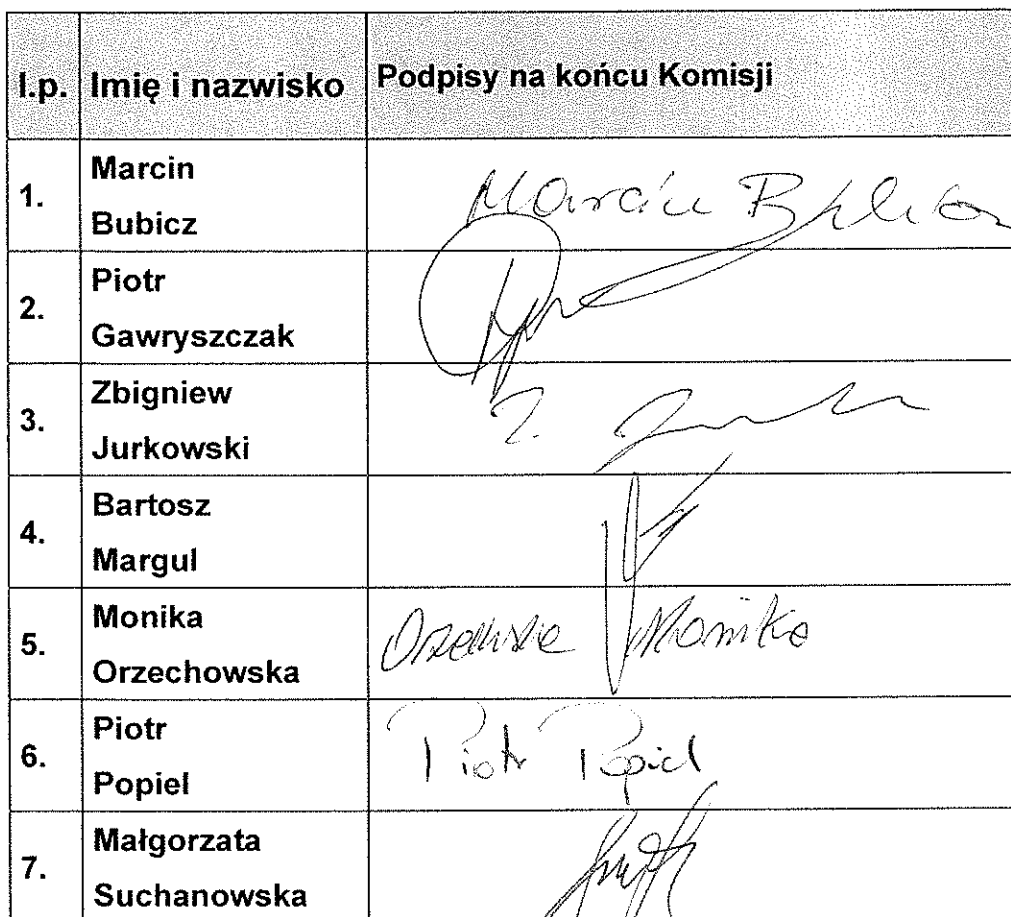 l.p. Imię i nazwisko Podpisy na końcu Komisji
1. Marcin
Bubicz
Marcin
2. Piotr
Gawryszczak
3. Zbigniew
Jurkowski
Z.
4. Bartosz
Margul
5. Monika
Orzechowska
Monika
6. Piotr
Popiel
Piotr Popiel
7. Małgorzata
Suchanowska